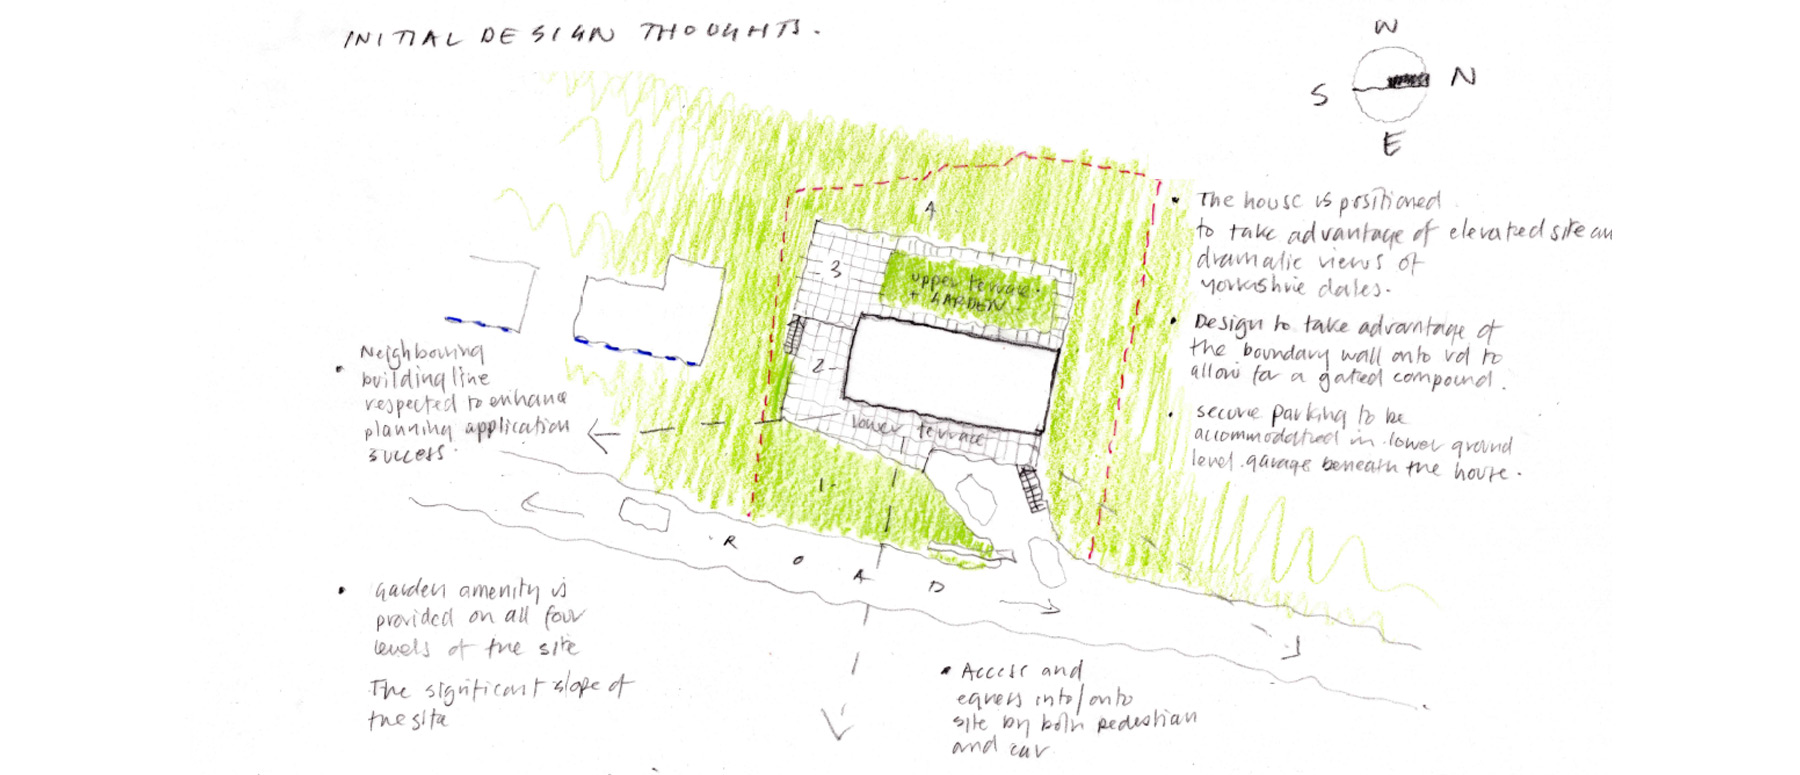 INITIAL DESIGN THOUGHTS.
W
S
N
E
• The house is positioned
to take advantage of elevated site an
dramatic views of
Yorkshire dales.
• Design to take advantage of
the boundary wall onto rd to
allow for a gated compound.
• secure parking to be
accommodated in lower ground
level garage beneath the house.
4
3
upper terrace
+ GARDEN
2
lower terrace
1
• Neighbouring
building line
respected to enhance
planning application
success.
R O A D
• Garden amenity is
provided on all four
levels of the site
The significant slope of
the site
• Access and
egress into/onto
site by both pedestrian
and car